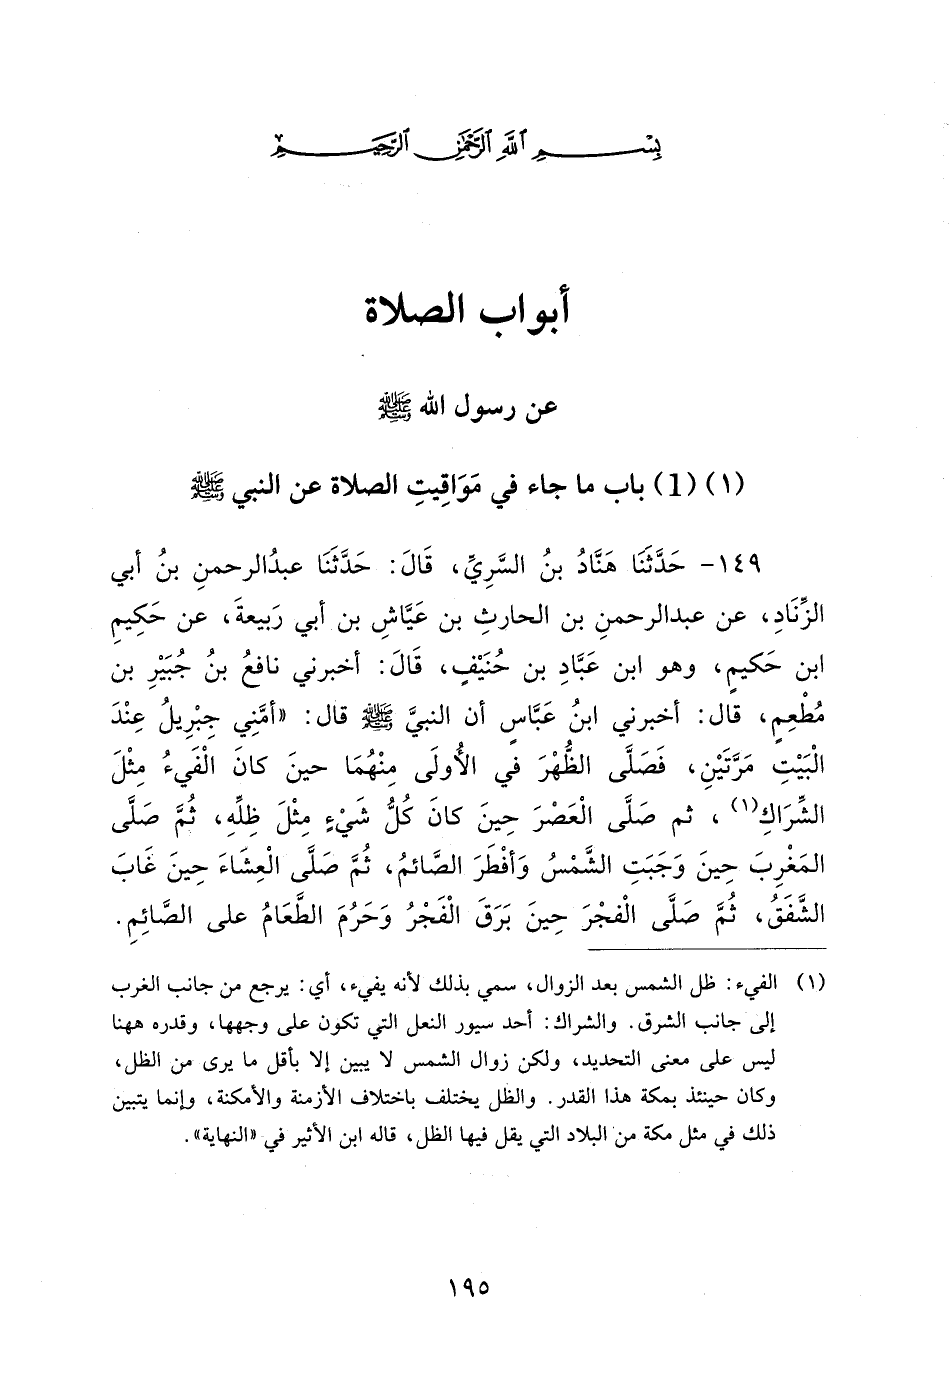 بِسْمِ ٱللَّهِ ٱلرَّحْمَٰنِ ٱلرَّحِيمِ
أبواب الصلاة
عن رسول الله ﷺ
(١) (1) باب ما جاء في مَوَاقِيتِ الصلاة عن النبي ﷺ
١٤٩- حَدَّثَنَا هَنَّادُ بنُ السَّرِيِّ، قَالَ: حَدَّثَنَا عبدُالرحمنِ بنُ أبي
الزِّنَادِ، عن عبدالرحمنِ بن الحارثِ بن عَيَّاشِ بن أبي رَبيعةَ، عن حَكِيمِ
ابن حَكيمٍ، وهو ابن عَبَّادِ بن حُنَيْفٍ، قَالَ: أخبرني نافعُ بنُ جُبَيْرِ بن
مُطْعِمٍ، قال: أخبرني ابنُ عَبَّاسٍ أن النبيَّ ﷺ قال: «أمَّنِي جِبْرِيلُ عِنْدَ
الْبَيْتِ مَرَّتَيْنِ، فَصَلَّى الظُّهْرَ في الأُولَى مِنْهُمَا حينَ كانَ الْفَيءُ مِثْلَ
الشِّرَاكِ(١)، ثم صَلَّى الْعَصْرَ حِينَ كانَ كُلُّ شَيْءٍ مِثْلَ ظِلِّهِ، ثُمَّ صَلَّى
المَغْرِبَ حِينَ وَجَبَتِ الشَّمْسُ وَأفْطَرَ الصَّائمُ، ثُمَّ صَلَّى الْعِشَاءَ حِينَ غَابَ
الشَّفَقُ، ثُمَّ صَلَّى الْفجْرَ حِينَ بَرَقَ الْفَجْرُ وَحَرُمَ الطَّعَامُ على الصَّائِمِ.
(١) الفيء: ظل الشمس بعد الزوال، سمي بذلك لأنه يفيء، أي: يرجع من جانب الغرب
إلى جانب الشرق. والشراك: أحد سيور النعل التي تكون على وجهها، وقدره ههنا
ليس على معنى التحديد، ولكن زوال الشمس لا يبين إلا بأقل ما يرى من الظل،
وكان حينئذ بمكة هذا القدر. والظل يختلف باختلاف الأزمنة والأمكنة، وإنما يتبين
ذلك في مثل مكة من البلاد التي يقل فيها الظل، قاله ابن الأثير في «النهاية».
١٩٥